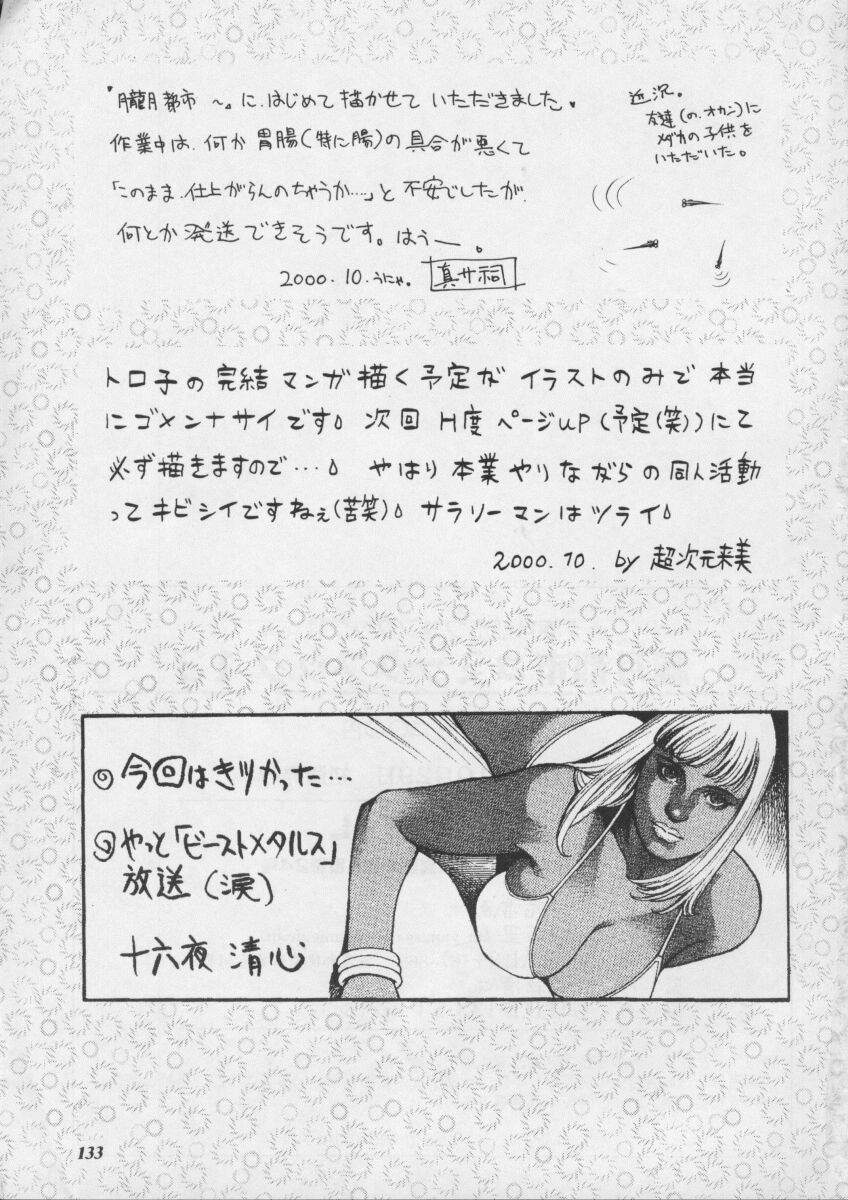 『朧月都市 〜』に、はじめて描かせて いただきました。
作業中は、何か 胃腸(特に腸)の 具合が悪くて
「このまま、仕上がらんのちゃうか…」と 不安でしたが、
何とか 発送できそうです。はうー。
2000.10.うにゃ。 真サ祠
近況。
友達(の、オカン)に
メダカの子供を
いただいた。
トロ子の完結マンガ描く予定が イラストのみで 本当
にゴメンナサイです。 次回 H度 ページup(予定(笑))にて
必ず描きますので…。 やはり 本業やりながらの同人活動
ってキビシイですねぇ(苦笑)。 サラリーマンはツライ。
2000.10. by 超次元来美
◎今回はきつかった…
◎やっと「ビーストメタルス」
放送(涙)
十六夜 清心
133